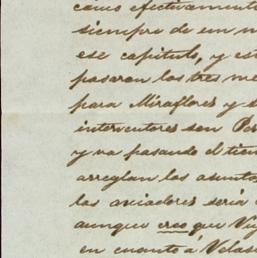 como efectivamente
siempre de un m
ese capitulo, y es
pasaron los tres me
para Miraflores y s
interventores son Per
y va pasando el tien
arreglan los asunt
los aviadores seria
aunque creo que Vi
en cuanto á Velas